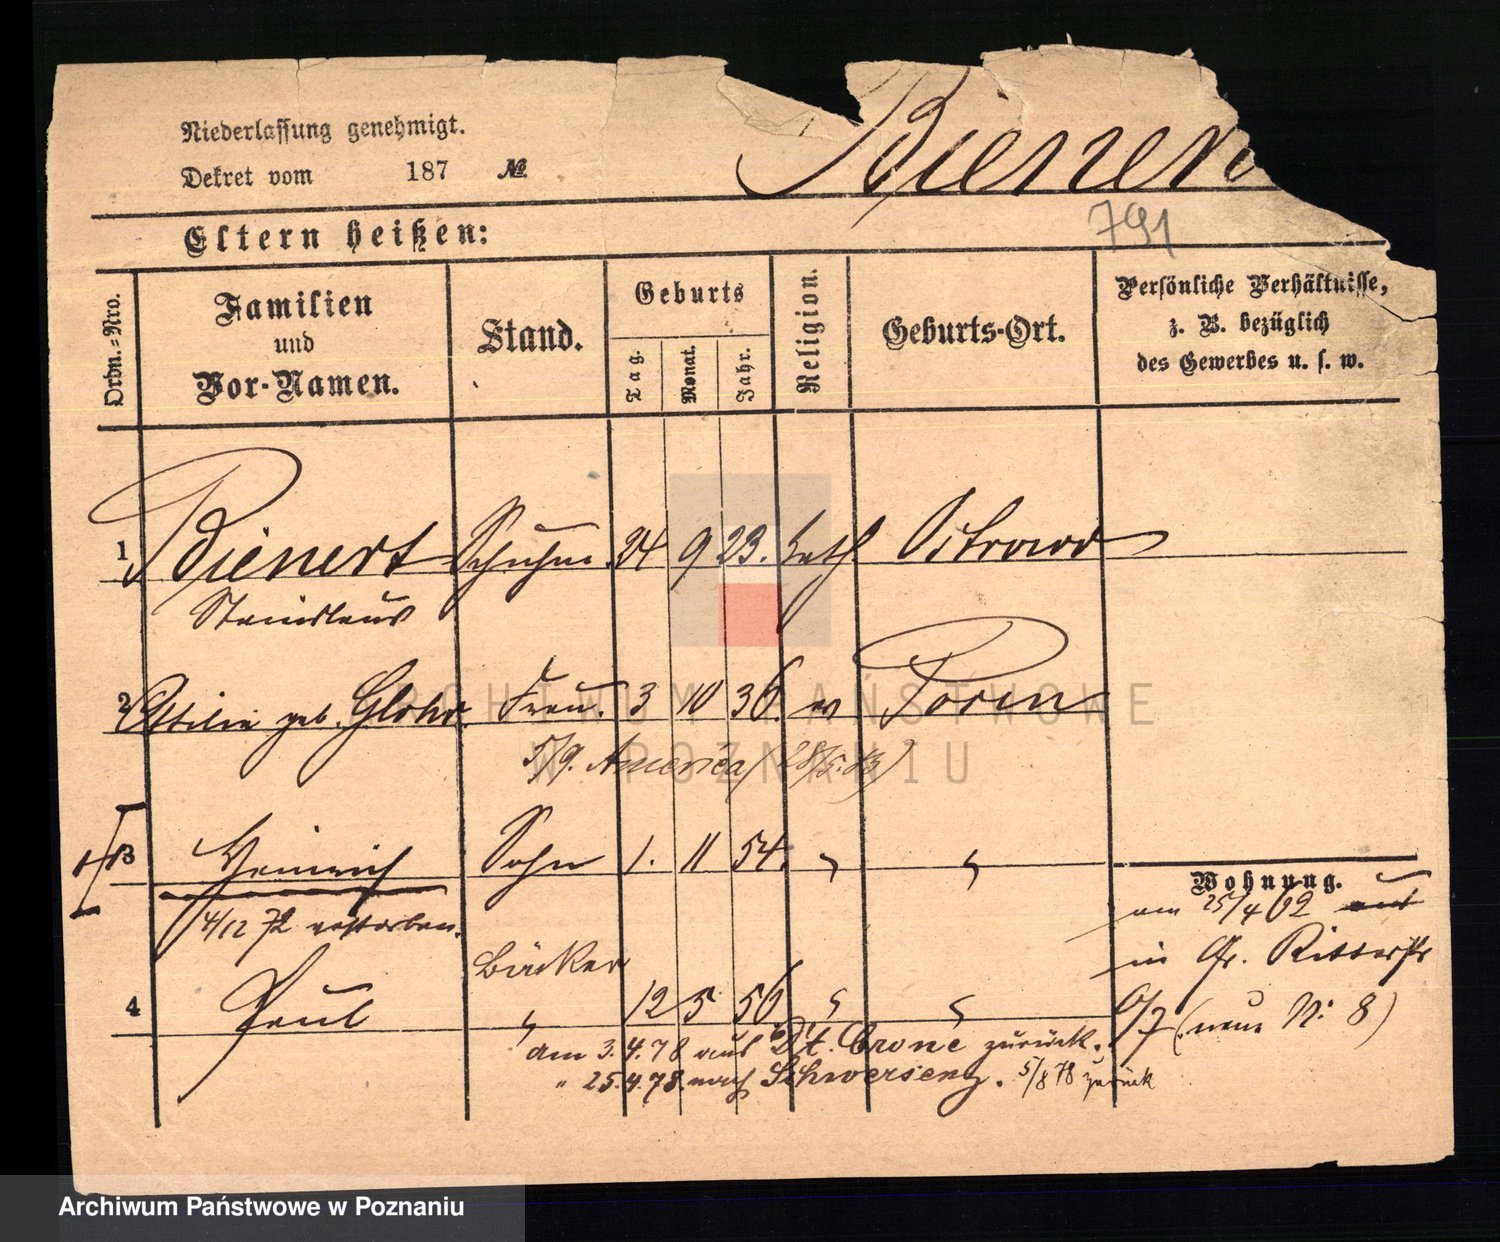 Niederlassung genehmigt.
Dekret vom 187 №
Biener
791
Eltern heißen:
Ordn.=Nro.
Familien
und
Vor-Namen.
Stand.
Geburts
Tag.
Monat.
Jahr.
Religion.
Geburts-Ort.
Persönliche Verhältnisse,
z. B. bezüglich
des Gewerbes u. s. w.
1 Bienert Schuhm. 24 9 23. kath. Ostrowo
Stanislaus
2 Ottilie geb. Frau. 3 10 36. ev Posen
5/9. America (28/5.83)
3 Heinrich Sohn 1. 11 54. " "
4/12 72 verstorben.
Wohnung.
am 25/4 62 aus
in Gr. Ritterstr
6/7 (neue N: 8)
Bäcker
4 Paul " 12 5 56 " "
am 3.4.78 aus Dt. Crone zurück.
" 25.4.78. nach Schwersenz. 5/8 78 zurück
ARCHIWUM PAŃSTWOWE
W POZNANIU
Archiwum Państwowe w Poznaniu